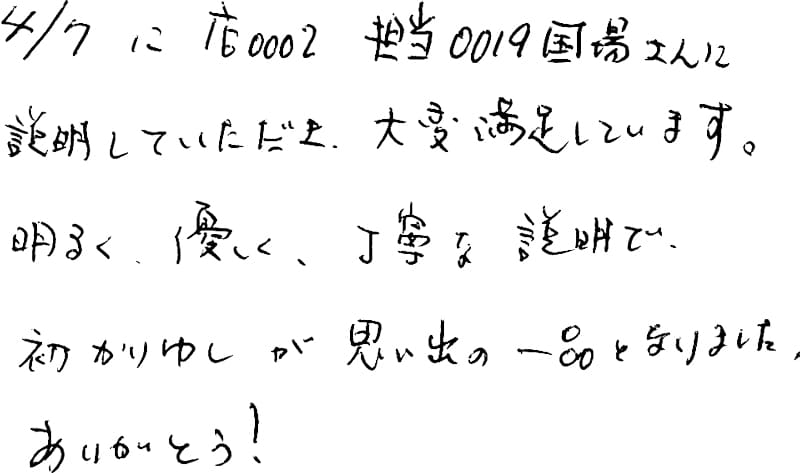 4/7 に 店0002 担当0019国場さんに
説明していただき、大変満足しています。
明るく、優しく、丁寧な説明で、
初かりゆしが思い出の一品となりました。
ありがとう!